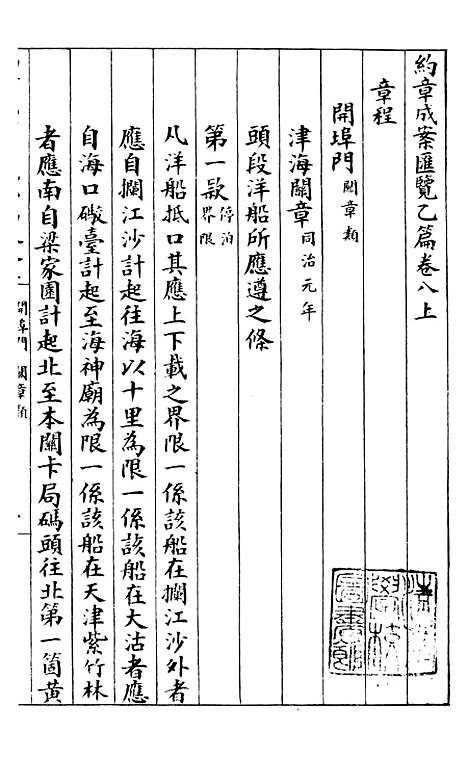 約章成案匯覽乙篇卷八上
章程
開埠門關章類
津海關章同治元年
頭段洋船所應遵之條
第一款停泊界限
凡洋船抵口其應上下載之界限一係該船在攔江沙外者
應自攔江沙計起往海以十里為限一係該船在大沽者應
自海口礮臺計起至海神廟為限一係該船在天津紫竹林
者應南自梁家園計起北至本關卡局碼頭往北第一箇黃
開埠門 關章類